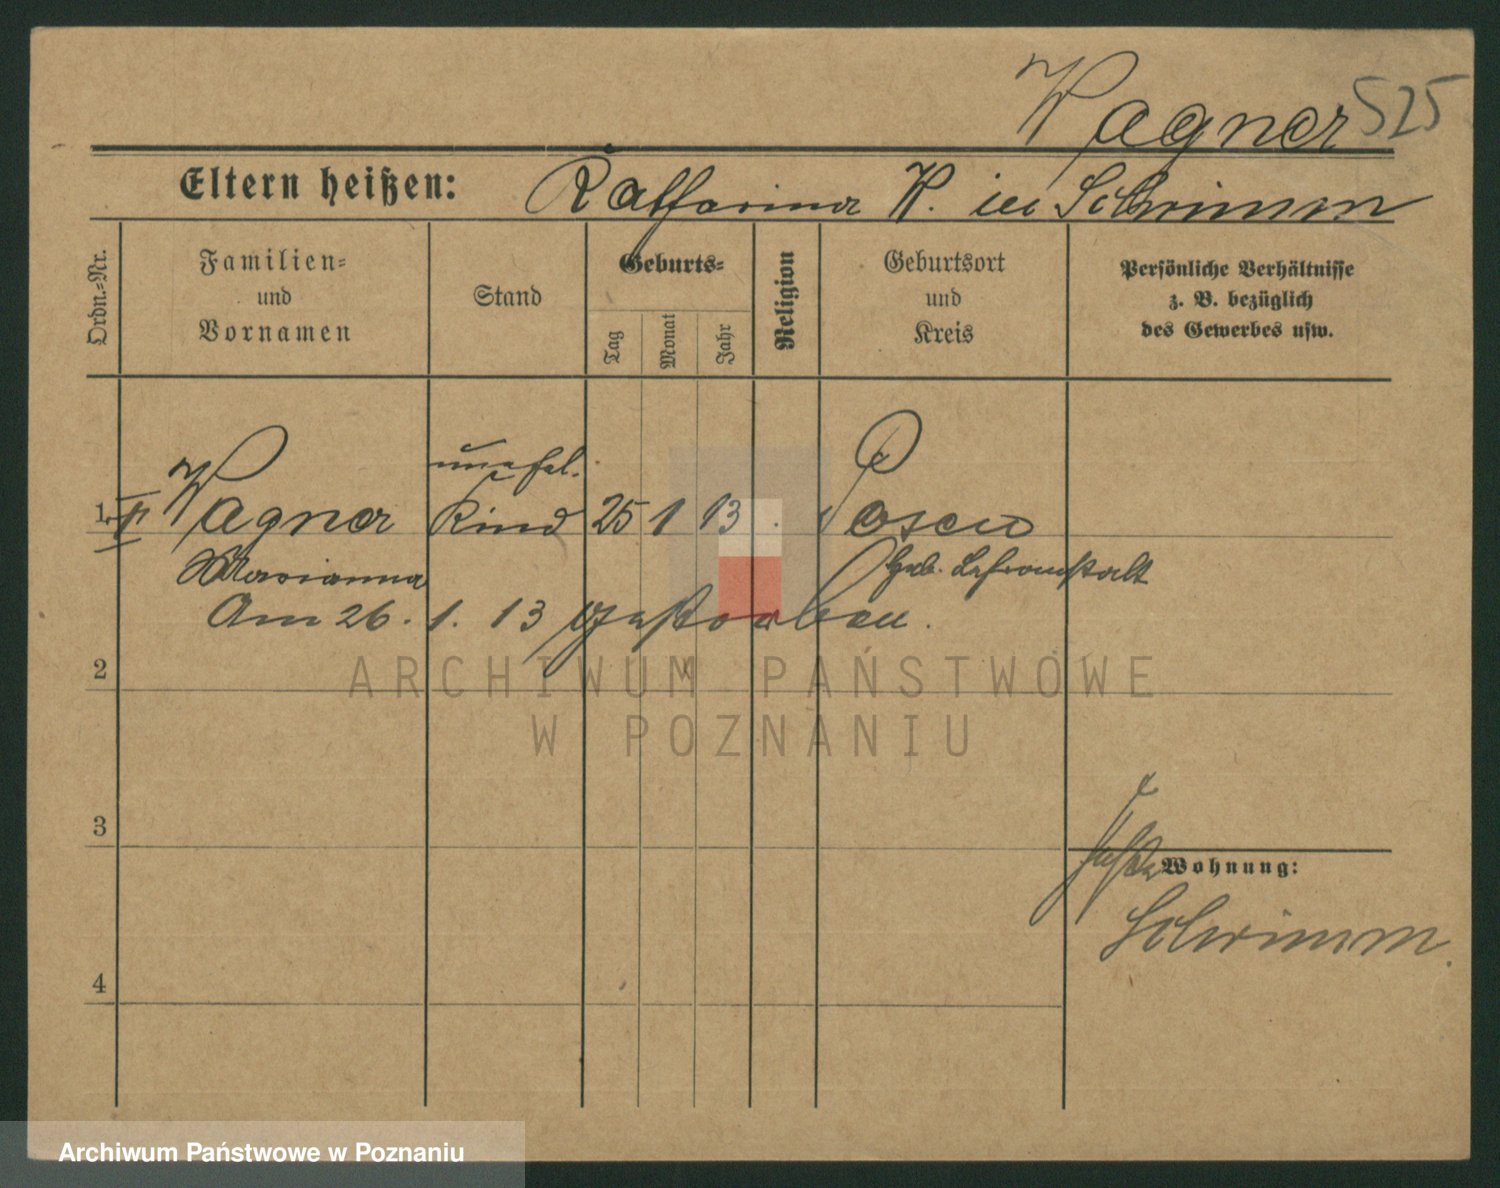 Wagner 525
Eltern heißen: Katharina W. in Schrimm
Ordn.-Nr.
Familien-
und
Vornamen
Stand
Geburts-
Tag
Monat
Jahr
Religion
Geburtsort
und
Kreis
Persönliche Verhältnisse
z. B. bezüglich
des Gewerbes usw.
unehel.
1. Wagner Kind 25 1 13 Posen
Marianna Geb. Lehranstalt
Am 26. 1. 13 gestorben.
2
3
4
Wohnung:
Schrimm.
ARCHIWUM PAŃSTWOWE
W POZNANIU
Archiwum Państwowe w Poznaniu